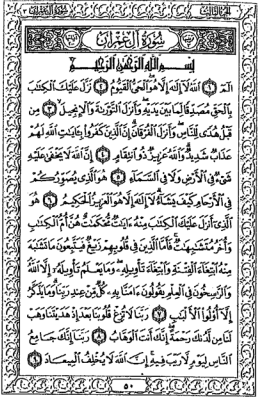 سورة آل عمران
بسم الله الرحمن الرحيم
الم ١ الله لا إله إلا هو الحي القيوم ٢ نزل عليك الكتاب
بالحق مصدقا لما بين يديه وأنزل التوراة والإنجيل ٣ من
قبل هدى للناس وأنزل الفرقان إن الذين كفروا بآيات الله لهم
عذاب شديد والله عزيز ذو انتقام ٤ إن الله لا يخفى عليه
شيء في الأرض ولا في السماء ٥ هو الذي يصوركم
في الأرحام كيف يشاء لا إله إلا هو العزيز الحكيم ٦ هو
الذي أنزل عليك الكتاب منه آيات محكمات هن أم الكتاب
وأخر متشابهات فأما الذين في قلوبهم زيغ فيتبعون ما تشابه
منه ابتغاء الفتنة وابتغاء تأويله وما يعلم تأويله إلا الله
والراسخون في العلم يقولون آمنا به كل من عند ربنا وما يذكر
إلا أولوا الألباب ٧ ربنا لا تزغ قلوبنا بعد إذ هديتنا وهب
لنا من لدنك رحمة إنك أنت الوهاب ٨ ربنا إنك جامع
الناس ليوم لا ريب فيه إن الله لا يخلف الميعاد ٩
٥٠